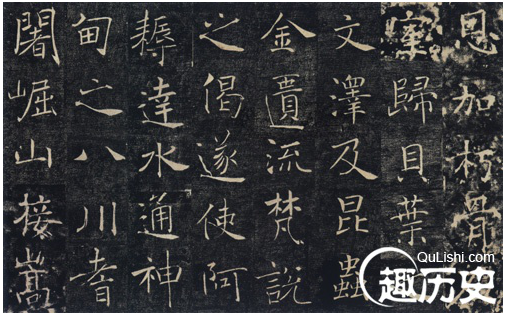 恩加朽骨
室歸貝葉
文澤及昆蟲
金匱流梵說
之偈遂使阿
耨達水通神
甸之八川耆
闍崛山接嵩
QuLishi.com
趣历史